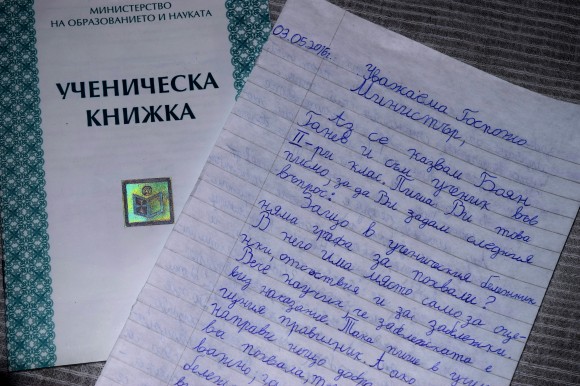 МИНИСТЕРСТВО
НА ОБРАЗОВАНИЕТО И НАУКАТА
УЧЕНИЧЕСКА
КНИЖКА
03.05.2016г.
Уважаема Госпожо
Министър,
Аз се казвам Боян
Ганев и съм ученик във
II-ри клас. Пиша Ви това
писмо, за да Ви задам следния
въпрос:
Защо в ученическия бележник
няма графа за похвали?
В него има място само за оце-
нки, отсъствия и за забележки.
Вече научих, че забележката е
вид наказание. Така пише в учили-
щния правилник. А ако
направи нещо добро
ва похвала,
важно, за